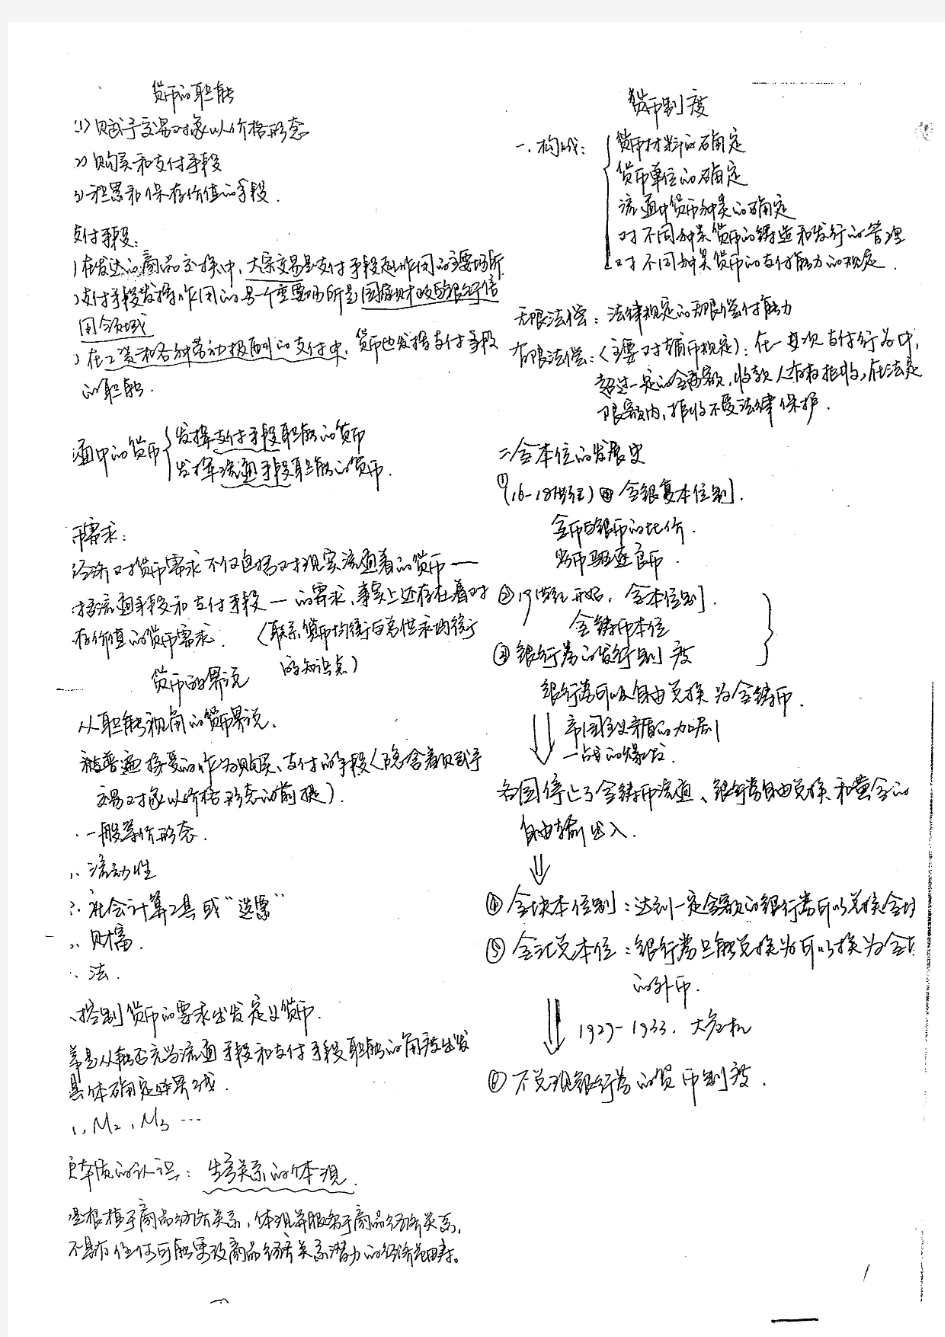 货币的职能
(1) 赋予交易对象以价格形态
2) 购买和支付手段
3) 积累和保存价值的手段.
支付手段:
) 在发达的商品交换中, 大宗交易是支付手段起作用的主要场所
) 支付手段发挥作用的另一个重要场所是国家财政与银行信
用领域
) 在工资和各种劳动报酬的支付中, 货币也发挥支付手段
的职能.
通中的货币 发挥支付手段职能的货币
发挥流通手段职能的货币.
币需求:
经济对货币需求不仅包括对现实流通着的货币—
括流通手段和支付手段—的需求, 事实上还存在着对
存价值的货币需求. (联系货币均衡与总供求均衡
的知识点)
货币的界说
从职能视角的货币界说.
被普遍接受的作为购买、支付的手段(隐含着赋予
交易对象以价格形态的前提).
一般等价形态.
流动性
社会计算工具或“选票”
财富.
法.
控制货币的要求出发定义货币.
是从能否充当流通手段和支付手段职能的角度出发
具体确定其界线.
1, M2, M3 ...
本质的认识: 生产关系的体现.
是根植于商品经济关系, 体现并服务于商品经济关系,
不具有任何可能改变商品经济关系潜力的经济范畴.
货币制度
一. 构成: 货币材料的确定
货币单位的确定
流通中货币种类的确定
对不同种类货币的铸造和发行的管理
对不同种类货币的支付能力的规定.
无限法偿: 法律规定的无限偿付能力
有限法偿: (主要对辅币规定): 在一次支付行为中,
超过一定的金额, 收款人有权拒收, 在法定
限额内, 拒收不受法律保护.
二 金本位的发展史
① (16-18世纪) 金银复本位制.
金币与银币的比价.
劣币驱逐良币.
② 19世纪开始, 金本位制.
金铸币本位
③ 银行券的发行制度
银行券可以自由兑换为金铸币.
帝国主义矛盾的加剧
一战的爆发.
各国停止了金铸币流通、银行券自由兑换和黄金的
自由输出入.
④ 金块本位制: 达到一定金额的银行券可以兑换金块
⑤ 金汇兑本位: 银行券只能兑换为可以换为金
的外币.
1929-1933. 大危机
⑥ 不兑现银行券的货币制度.
1